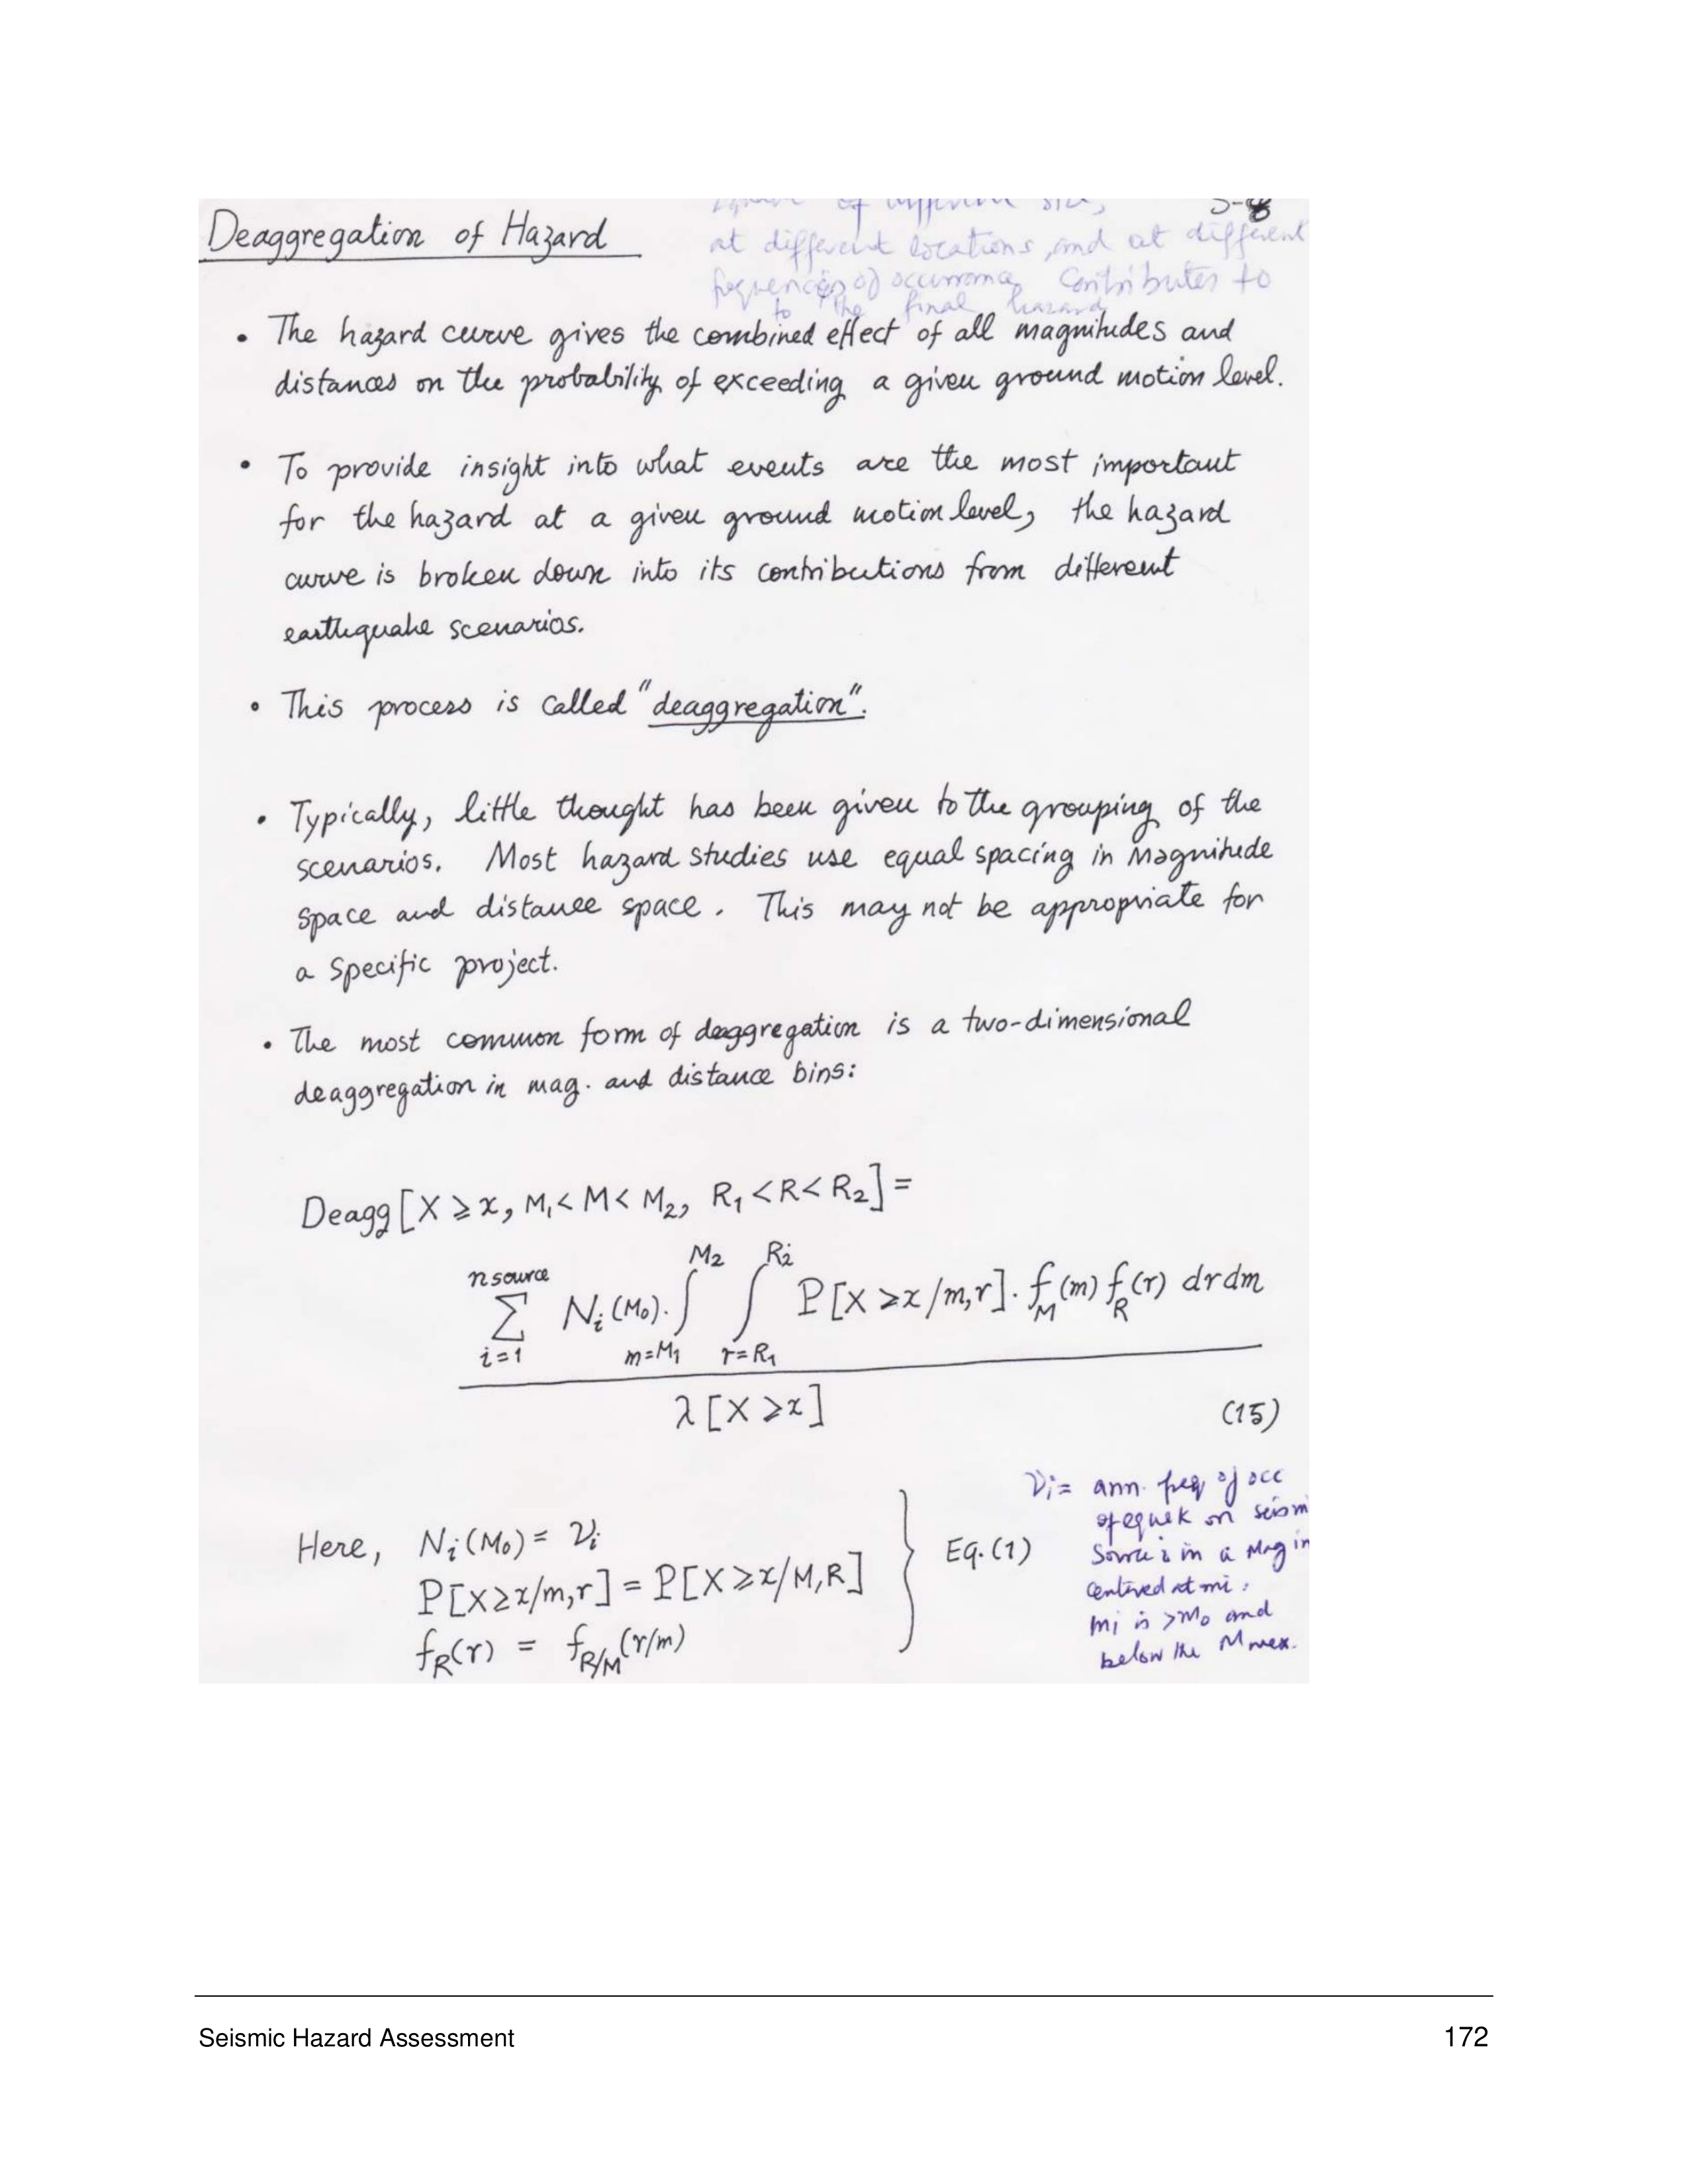 Deaggregation of Hazard
of different size,
at different locations, and at different
frequencies of occurrence, contributes to
to the final hazard
• The hazard curve gives the combined effect of all magnitudes and
distances on the probability of exceeding a given ground motion level.
• To provide insight into what events are the most important
for the hazard at a given ground motion level, the hazard
curve is broken down into its contributions from different
earthquake scenarios.
• This process is called "deaggregation".
• Typically, little thought has been given to the grouping of the
scenarios. Most hazard studies use equal spacing in Magnitude
space and distance space. This may not be appropriate for
a specific project.
• The most common form of deaggregation is a two-dimensional
deaggregation in mag. and distance bins:
Deagg [X ≥ x, M₁ < M < M₂, R₁ < R < R₂] =
n source M₂ R₂
Σ Nᵢ(M₀). ∫ ∫ P[X ≥ x/m,r]. f_M(m) f_R(r) dr dm
i=1 m=M₁ r=R₁
λ[X ≥ x] (15)
νᵢ = ann. freq of occ
of eqwek on seism
Here, Nᵢ(M₀) = νᵢ
Eq. (1)
Source i in a Mag in
P[X ≥ x/m,r] = P[X ≥ x/M,R]
centered at mi.
mi is > M₀ and
f_R(r) = f_R/M(r/m)
below the Mmax.
Seismic Hazard Assessment 172